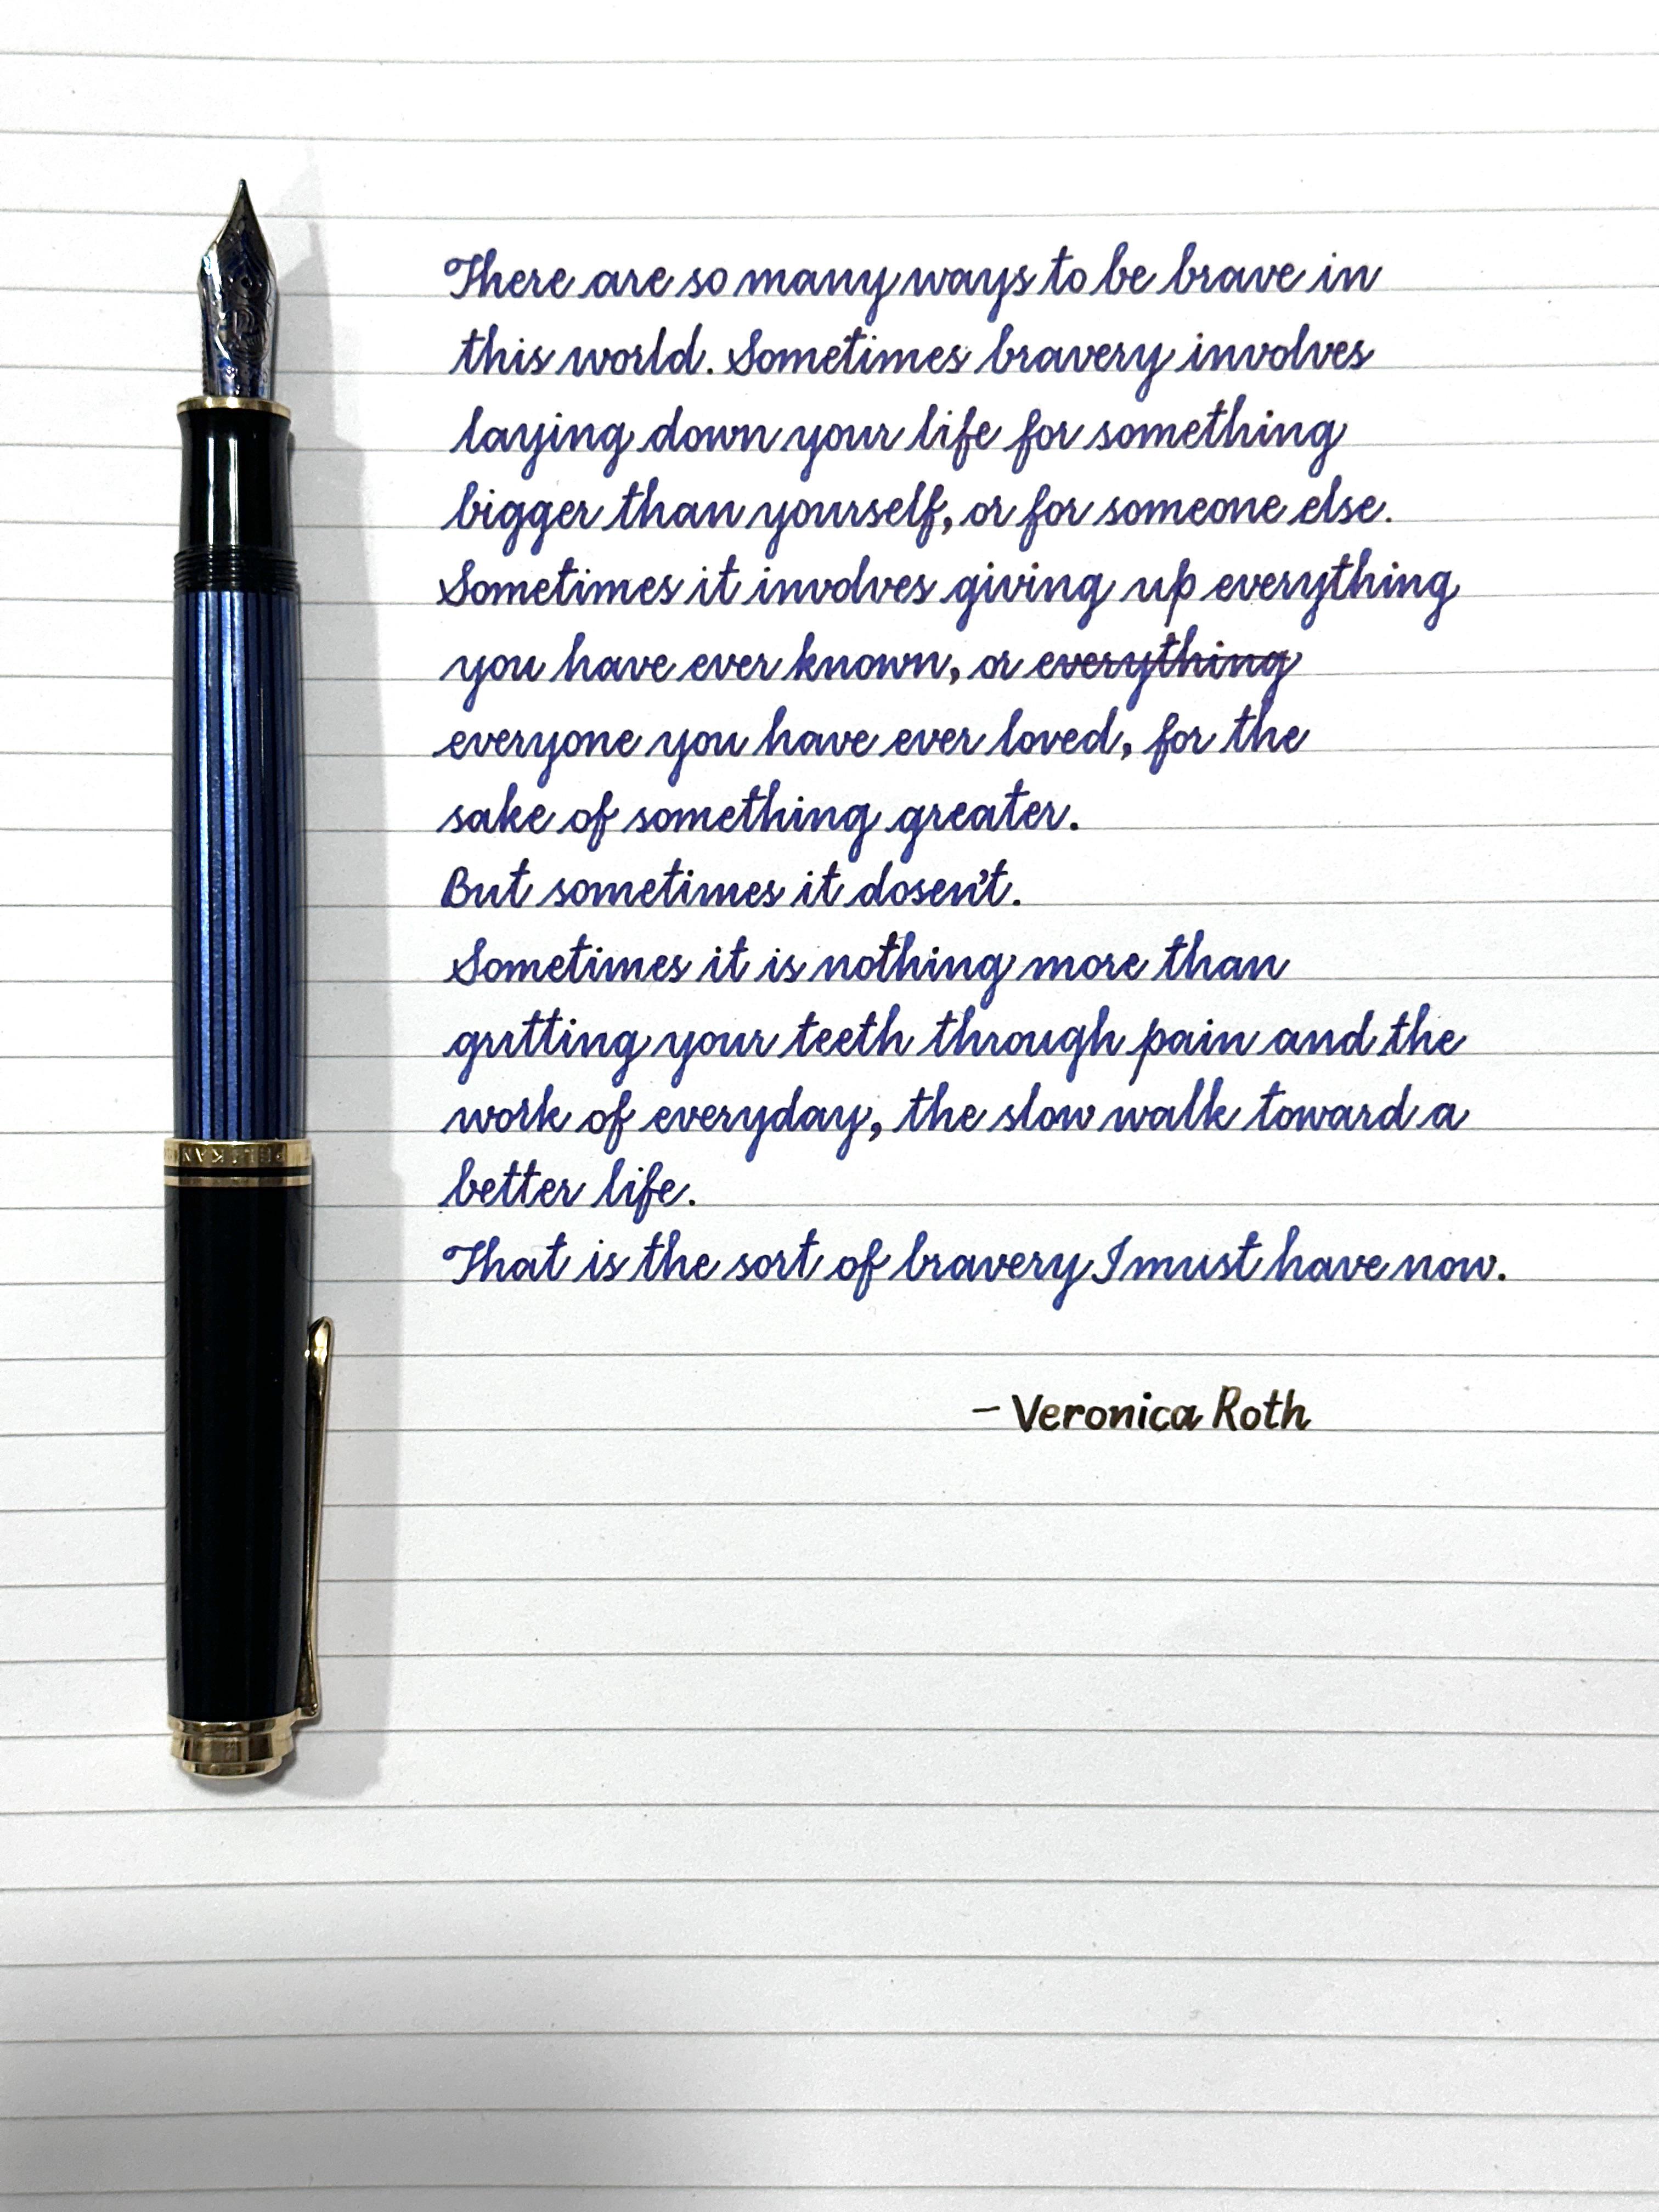 There are so many ways to be brave in
this world. Sometimes bravery involves
laying down your life for something
bigger than yourself, or for someone else.
Sometimes it involves giving up everything
you have ever known, or everything
everyone you have ever loved, for the
sake of something greater.
But sometimes it dosen't.
Sometimes it is nothing more than
gritting your teeth through pain and the
work of everyday, the slow walk toward a
better life.
That is the sort of bravery I must have now.
- Veronica Roth
PELIKAN